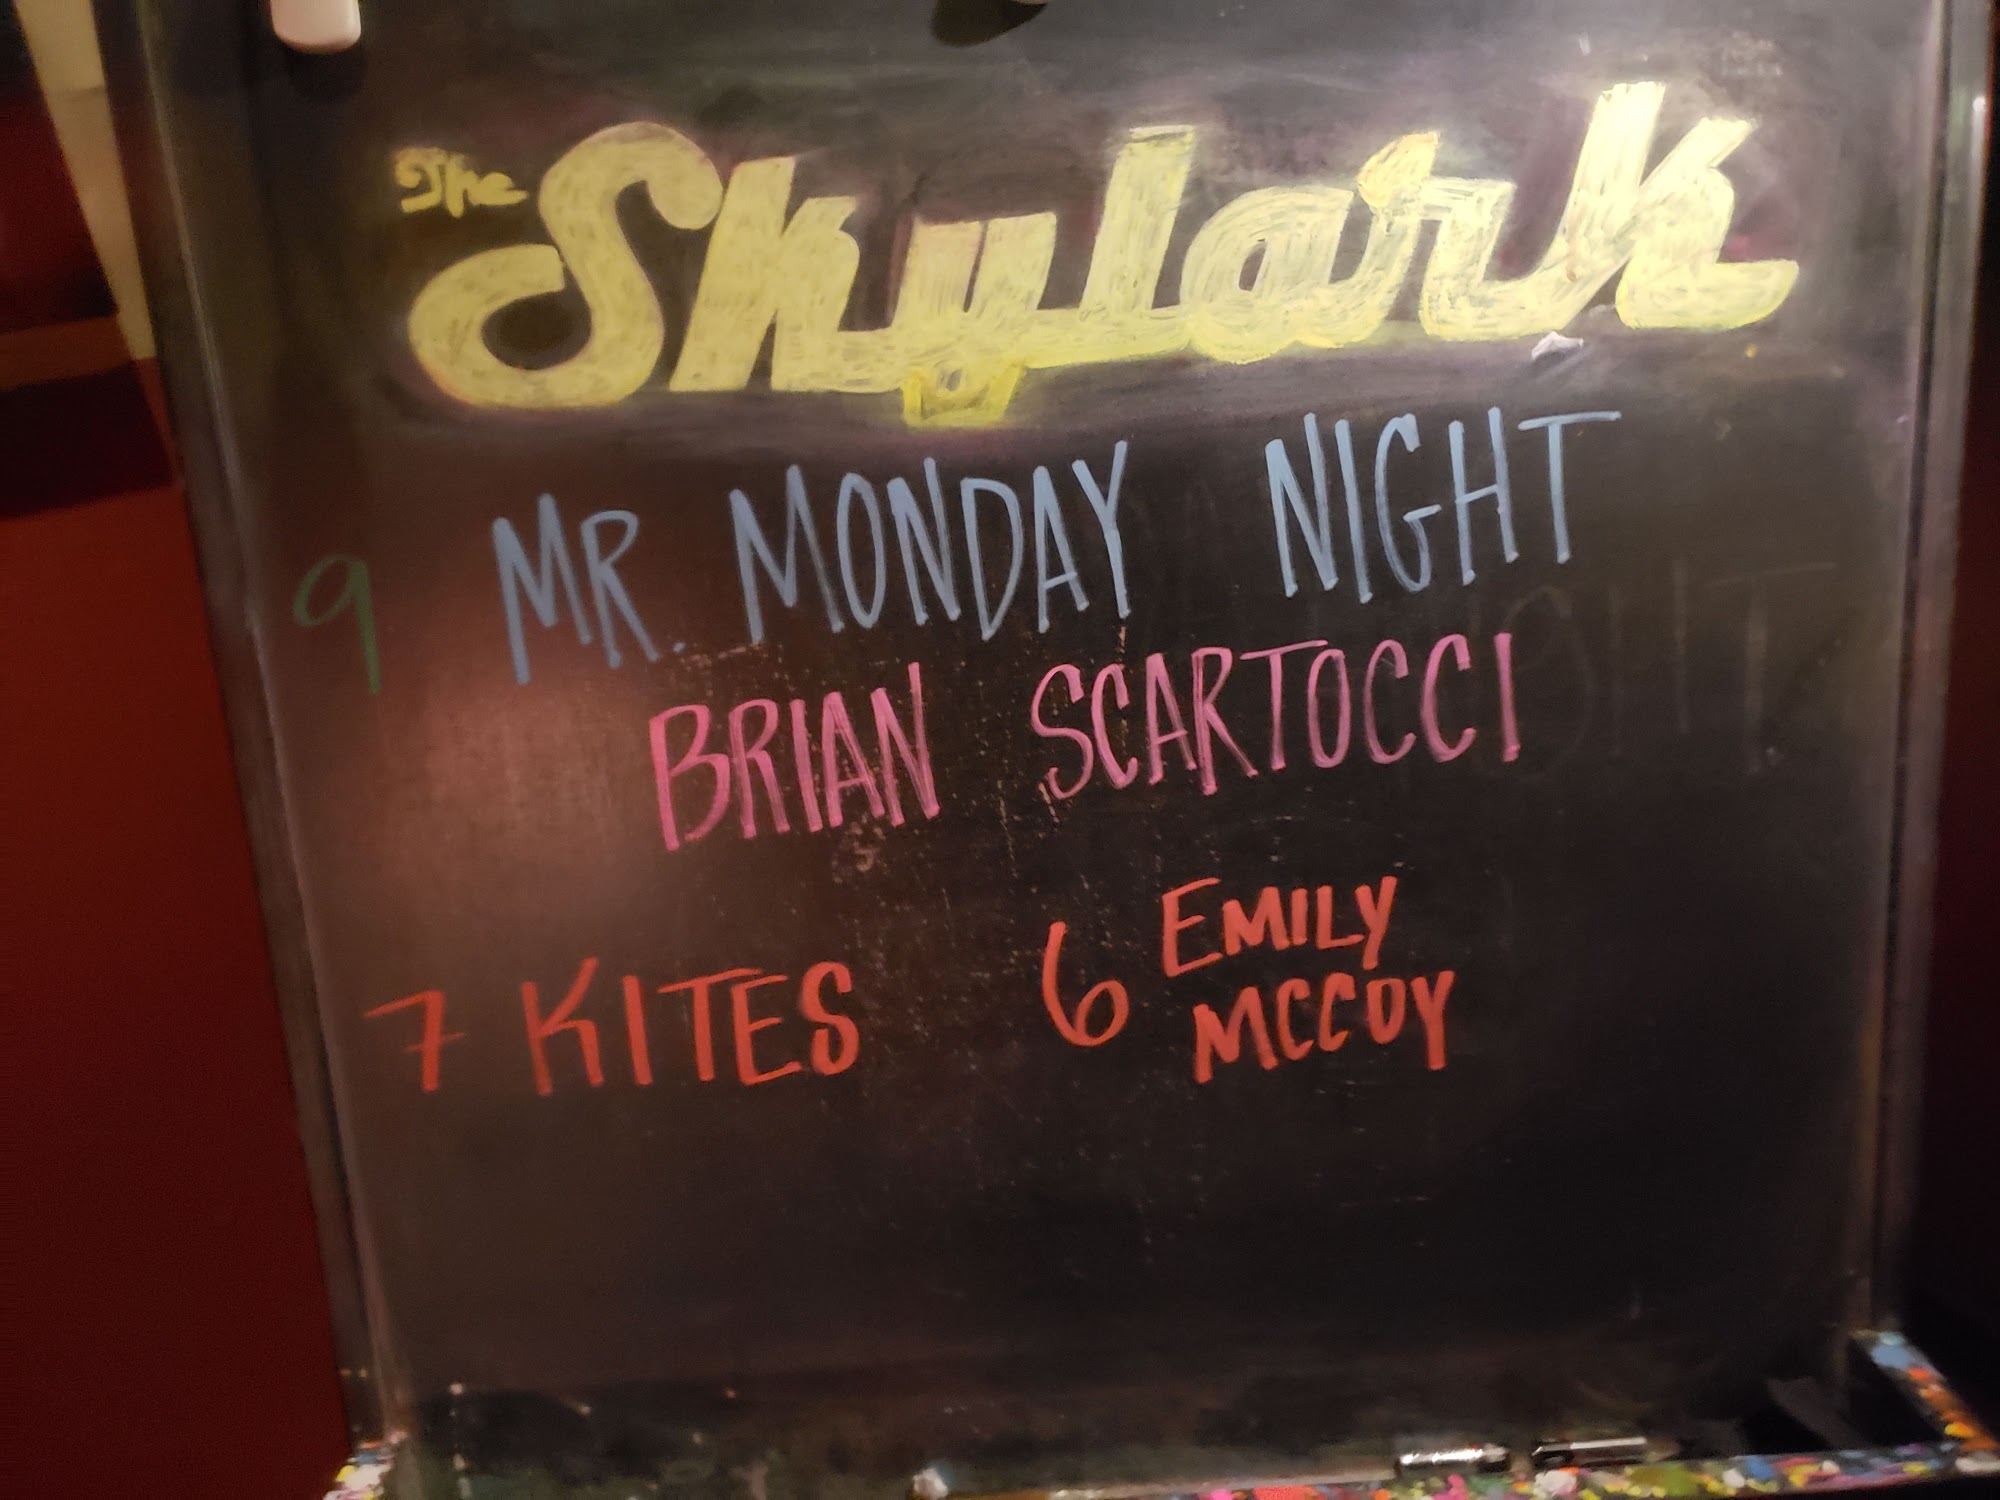 The Skylark
9 MR. MONDAY NIGHT
BRIAN SCARTOCCI
7 KITES
6 EMILY
MCCOY